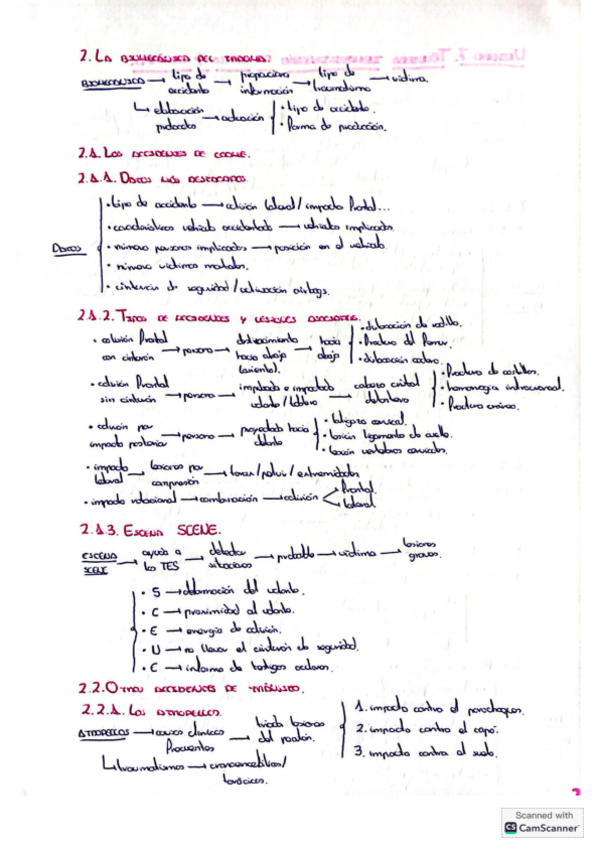 2. La biomecánica del trauma.
Biomecánica → tipo de accidente → proporciona información → tipo de traumatismo → víctima.
↳ elaboración protocolos → actuación
· tipo de accidente.
· forma de producción.
2.1. Los accidentes de coche.
2.1.1. Datos más destacados.
Datos
· tipo de accidente → colisión lateral / impacto frontal...
· características vehículo accidentado → vehículos implicados.
· número personas implicadas → posición en el vehículo.
· número víctimas mortales.
· cinturón de seguridad / activación airbags.
2.1.2. Tipos de accidentes y lesiones asociadas.
· colisión frontal con cinturón → persona → desplazamiento hacia abajo (asiento). → hacia abajo
· dislocación de rodilla.
· fractura del fémur.
· dislocación cadera.
· colisión frontal sin cinturón → persona → impulsada e impactada volante / tablero → cabeza cristal delantero
· fractura de costillas.
· hemorragia intracraneal.
· fractura cráneo.
· colisión por impacto posterior → persona → proyectada hacia delante
· latigazo cervical.
· lesión ligamento de cuello.
· lesión vértebras cervicales.
· impacto lateral → lesiones por compresión → tórax / pelvis / extremidades
· impacto rotacional → combinación → colisión
frontal
lateral
2.1.3. Escena SCENE.
Escena SCENE → ayuda a los TES → detectar situaciones → probable → víctima → lesiones graves.
· S → deformación del volante.
· C → proximidad al volante.
· E → energía de colisión.
· U → no llevar el cinturón de seguridad.
· C → informe de testigos oculares.
2.2. Otros accidentes de tráfico.
2.2.1. Los atropellos.
Atropellos → casos clínicos frecuentes → triada lesiones del peatón.
1. impacto contra el parachoques.
2. impacto contra el capó.
3. impacto contra el suelo.
↳ traumatismos → craneoencefálicos / torácicos.
Scanned with
CS CamScanner